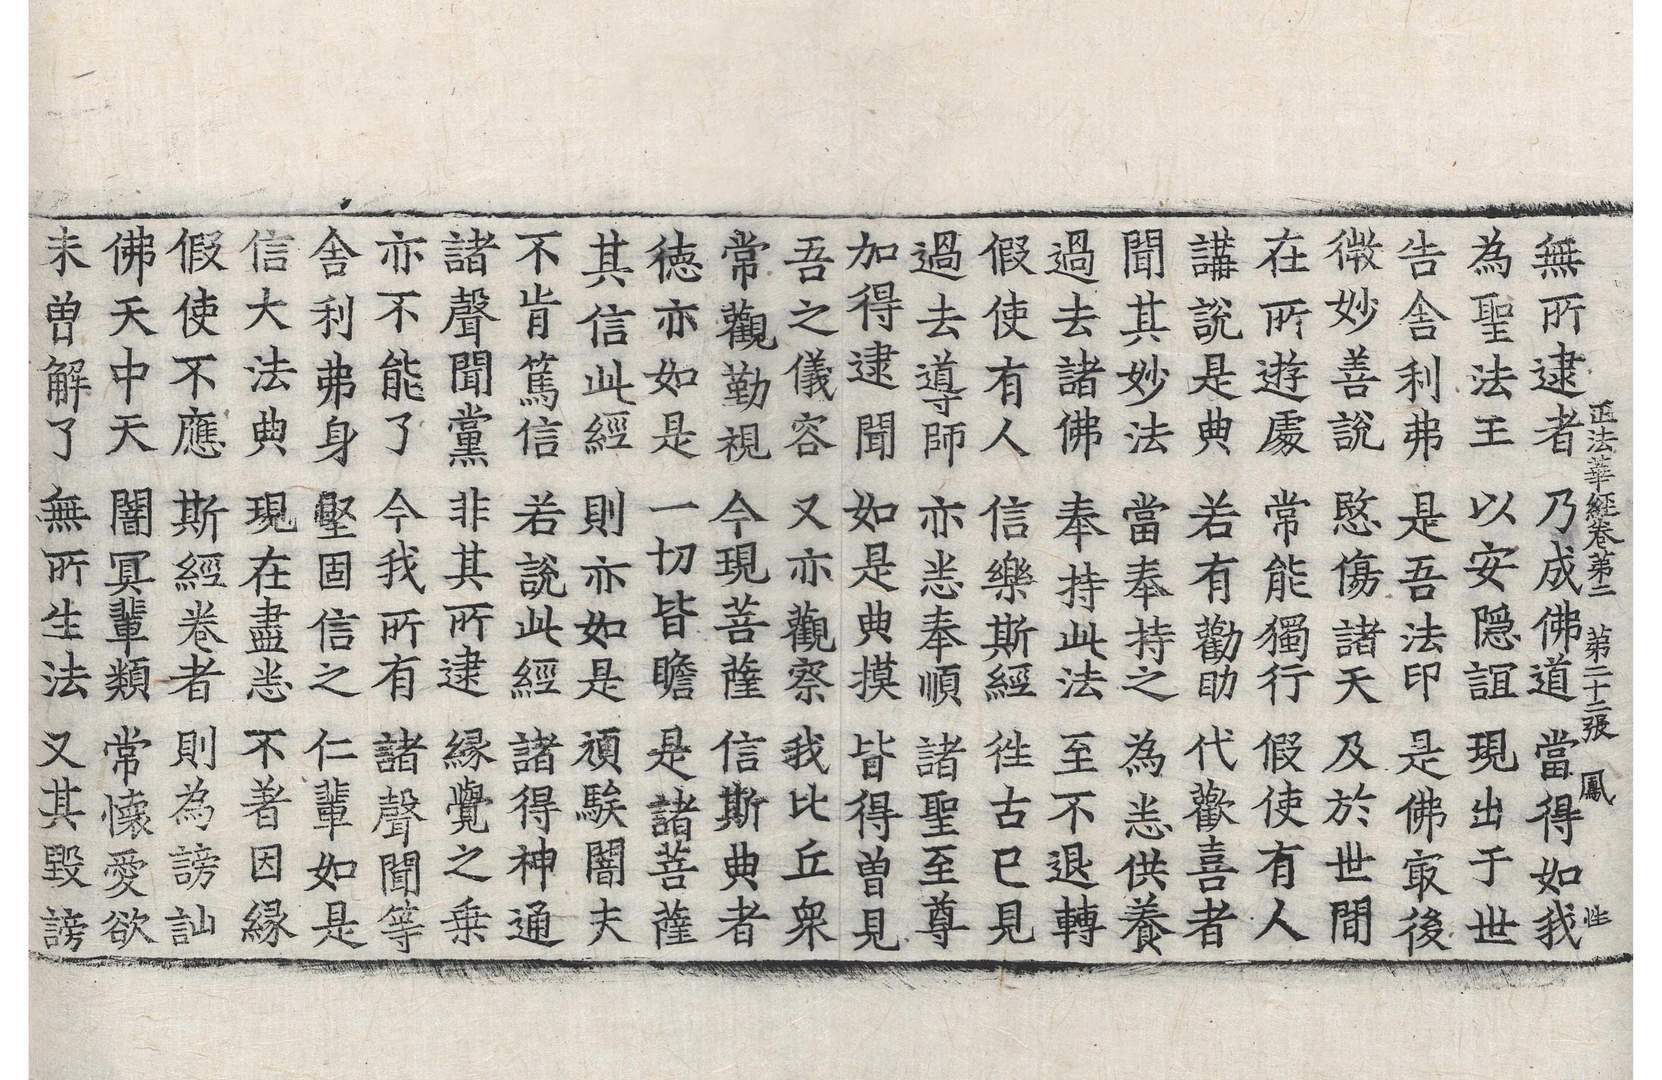 正法華經卷第二 第二十二張 鳳
無所逮者 乃成佛道 當得如我
為聖法王 以安隱誼 現出于世
告舍利弗 是吾法印 是佛㝡後
微妙善說 愍傷諸天 及於世間
在所遊處 常能獨行 假使有人
講說是典 若有勸助 代歡喜者
聞其妙法 當奉持之 為悉供養
過去諸佛 奉持此法 至不退轉
假使有人 信樂斯經 徃古已見
過去導師 亦悉奉順 諸聖至尊
加得逮聞 如是典摸 皆得曾見
吾之儀容 又亦觀察 我比丘眾
常觀勤視 今現菩薩 信斯典者
德亦如是 一切皆瞻 是諸菩薩
其信此經 則亦如是 頑騃闇夫
不肯篤信 若說此經 諸得神通
諸聲聞黨 非其所逮 緣覺之乗
亦不能了 今我所有 諸聲聞等
舍利弗身 堅固信之 仁輩如是
信大法典 現在盡悉 不著因緣
假使不應 斯經卷者 則為謗訕
佛天中天 闇冥輩類 常懷愛欲
未曾解了 無所生法 又其毀謗